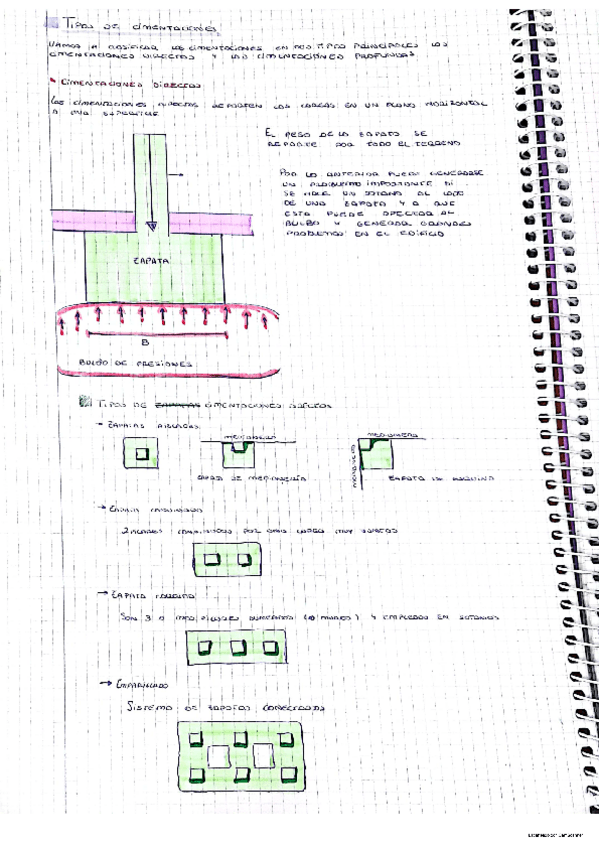 Tipos de cimentaciones
Vamos a clasificar las cimentaciones en dos tipos principales las
cimentaciones directas y las cimentaciones profundas
Cimentaciones directas
Las cimentaciones directas reparten las cargas en un plano horizontal
El peso de la zapata se
reparte por todo el terreno
Por lo anterior puede generarse
un problema importante si
se hace un sotano al lado
de una zapata y a que
esta puede afectar al
bulbo y generar grandes
problemas en el edificio
ZAPATA
B
Bulbo de presiones
Tipos de zapatas cimentaciones directas
→ Zapatas aisladas
medianeria
medianera
medianera
zapata de medianería
zapata de esquina
→ Zapata combinada
2 pilares combinados por
→ Zapata corrida
Son 3 o mas pilares alineados (o muros) y empleado en sotanos
→ Emparrillado
Sistema de zapatas conectadas